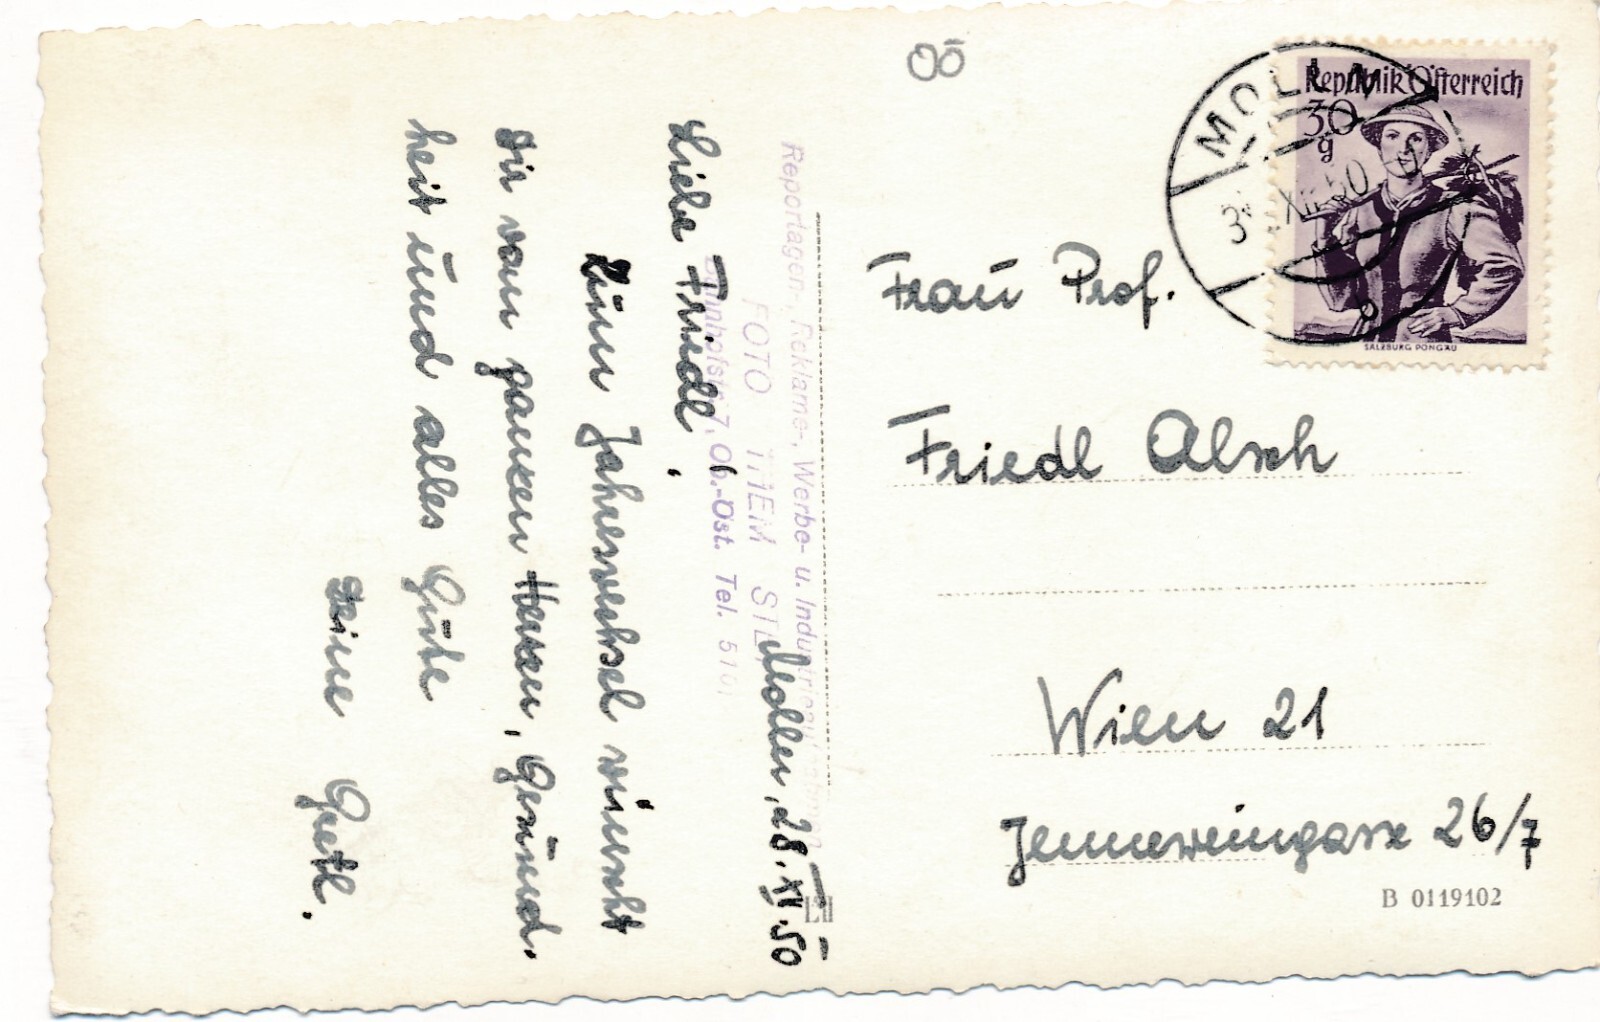 OÖ
Republik Österreich
30
g
SALZBURG PONGAU
MOLLN
XII. 50
b
Frau Prof.
Friedl Alsch
Wien 21
Jenneweingasse 26/7
B 0119102
Reportagen-, Reklame-, Werbe- u. Industrieaufnahmen
FOTO THEM
Bahnhofstr. 7, Ob.-Öst. Tel. 5101
Molln, 28. XII. 50
Liebe Friedl,
Zum Jahreswechsel wünscht
Dir vom ganzen Herzen, Gesund-
heit und alles Gute
Deine Gretl.